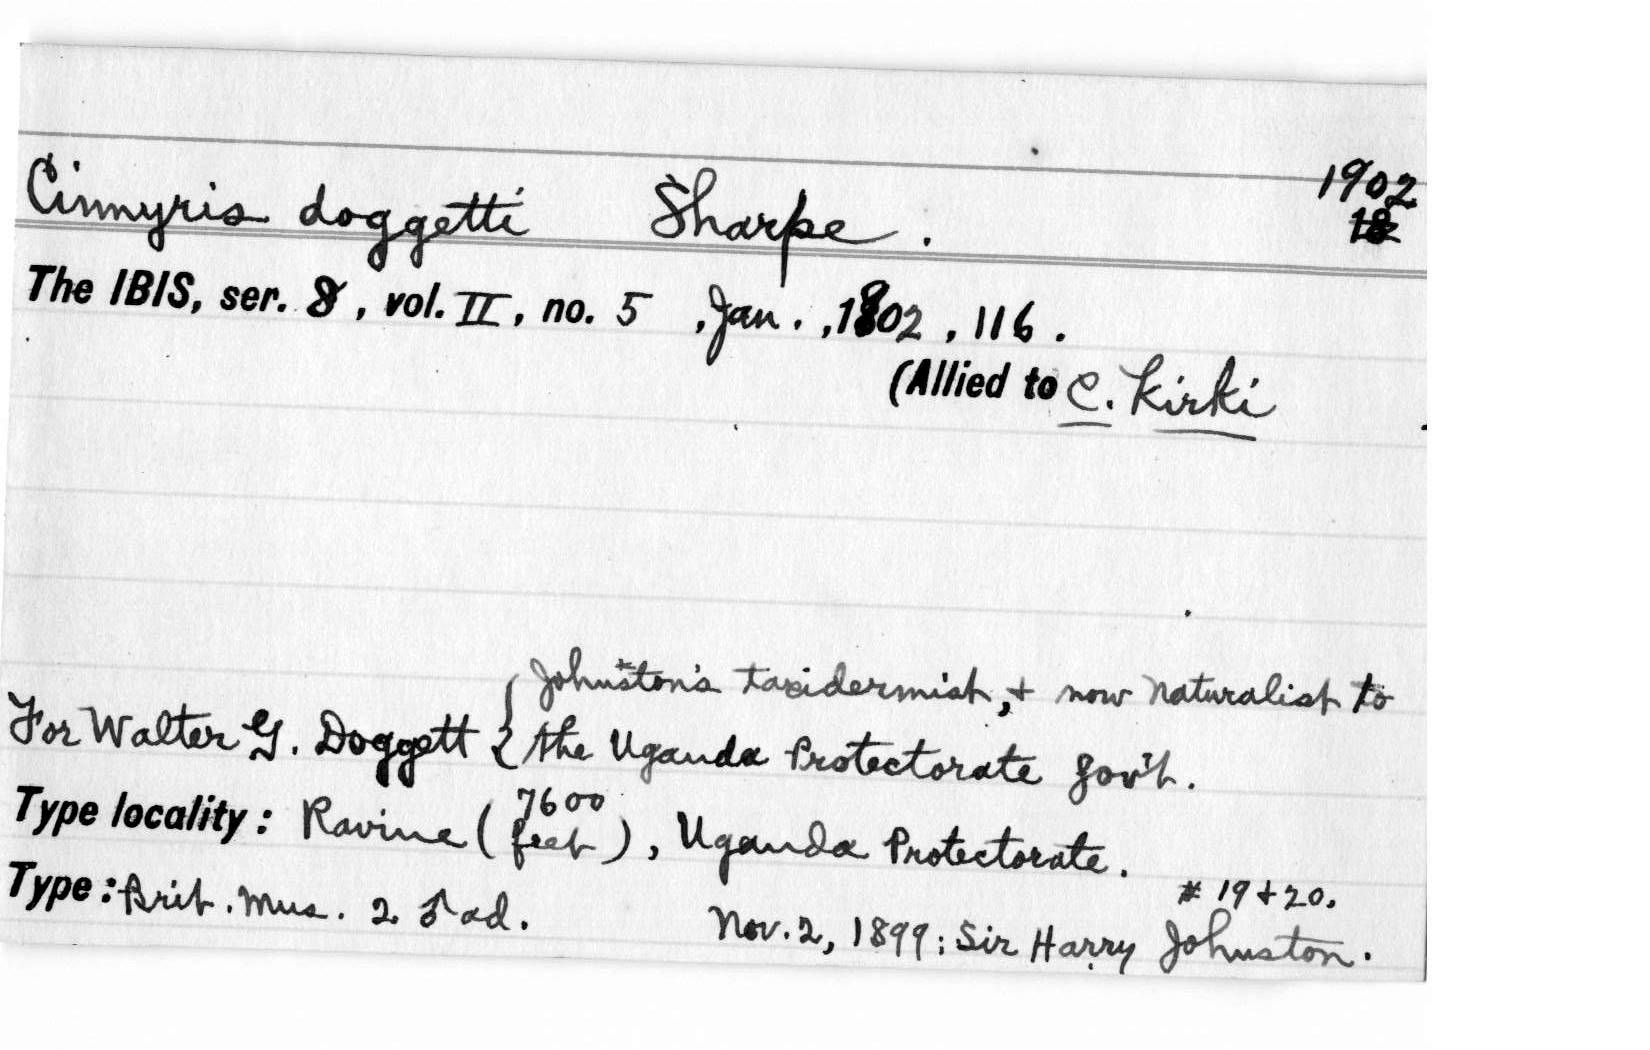 Cinnyris doggetti Sharpe. 1902
The IBIS, ser. 8, vol. II, no. 5, Jan., 1902, 116.
(Allied to C. Kirki
Johnston's taxidermist, + now naturalist to
For Walter G. Doggett { the Uganda Protectorate Gov't.
Type locality: Ravine (7600 feet), Uganda Protectorate.
# 19 + 20.
Type: Brit. Mus. 2 ♂ ad. Nov. 2, 1899: Sir Harry Johnston.